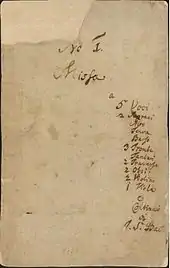 No 1.
Missa
a
5 Voci
2 Soprani
Alto
Tenore
Basso
3 Trombe
Tamburi
2 Traversi
2 Oboi
2 Violini
1 Viola
e
Continuo
di
J. S. Bach